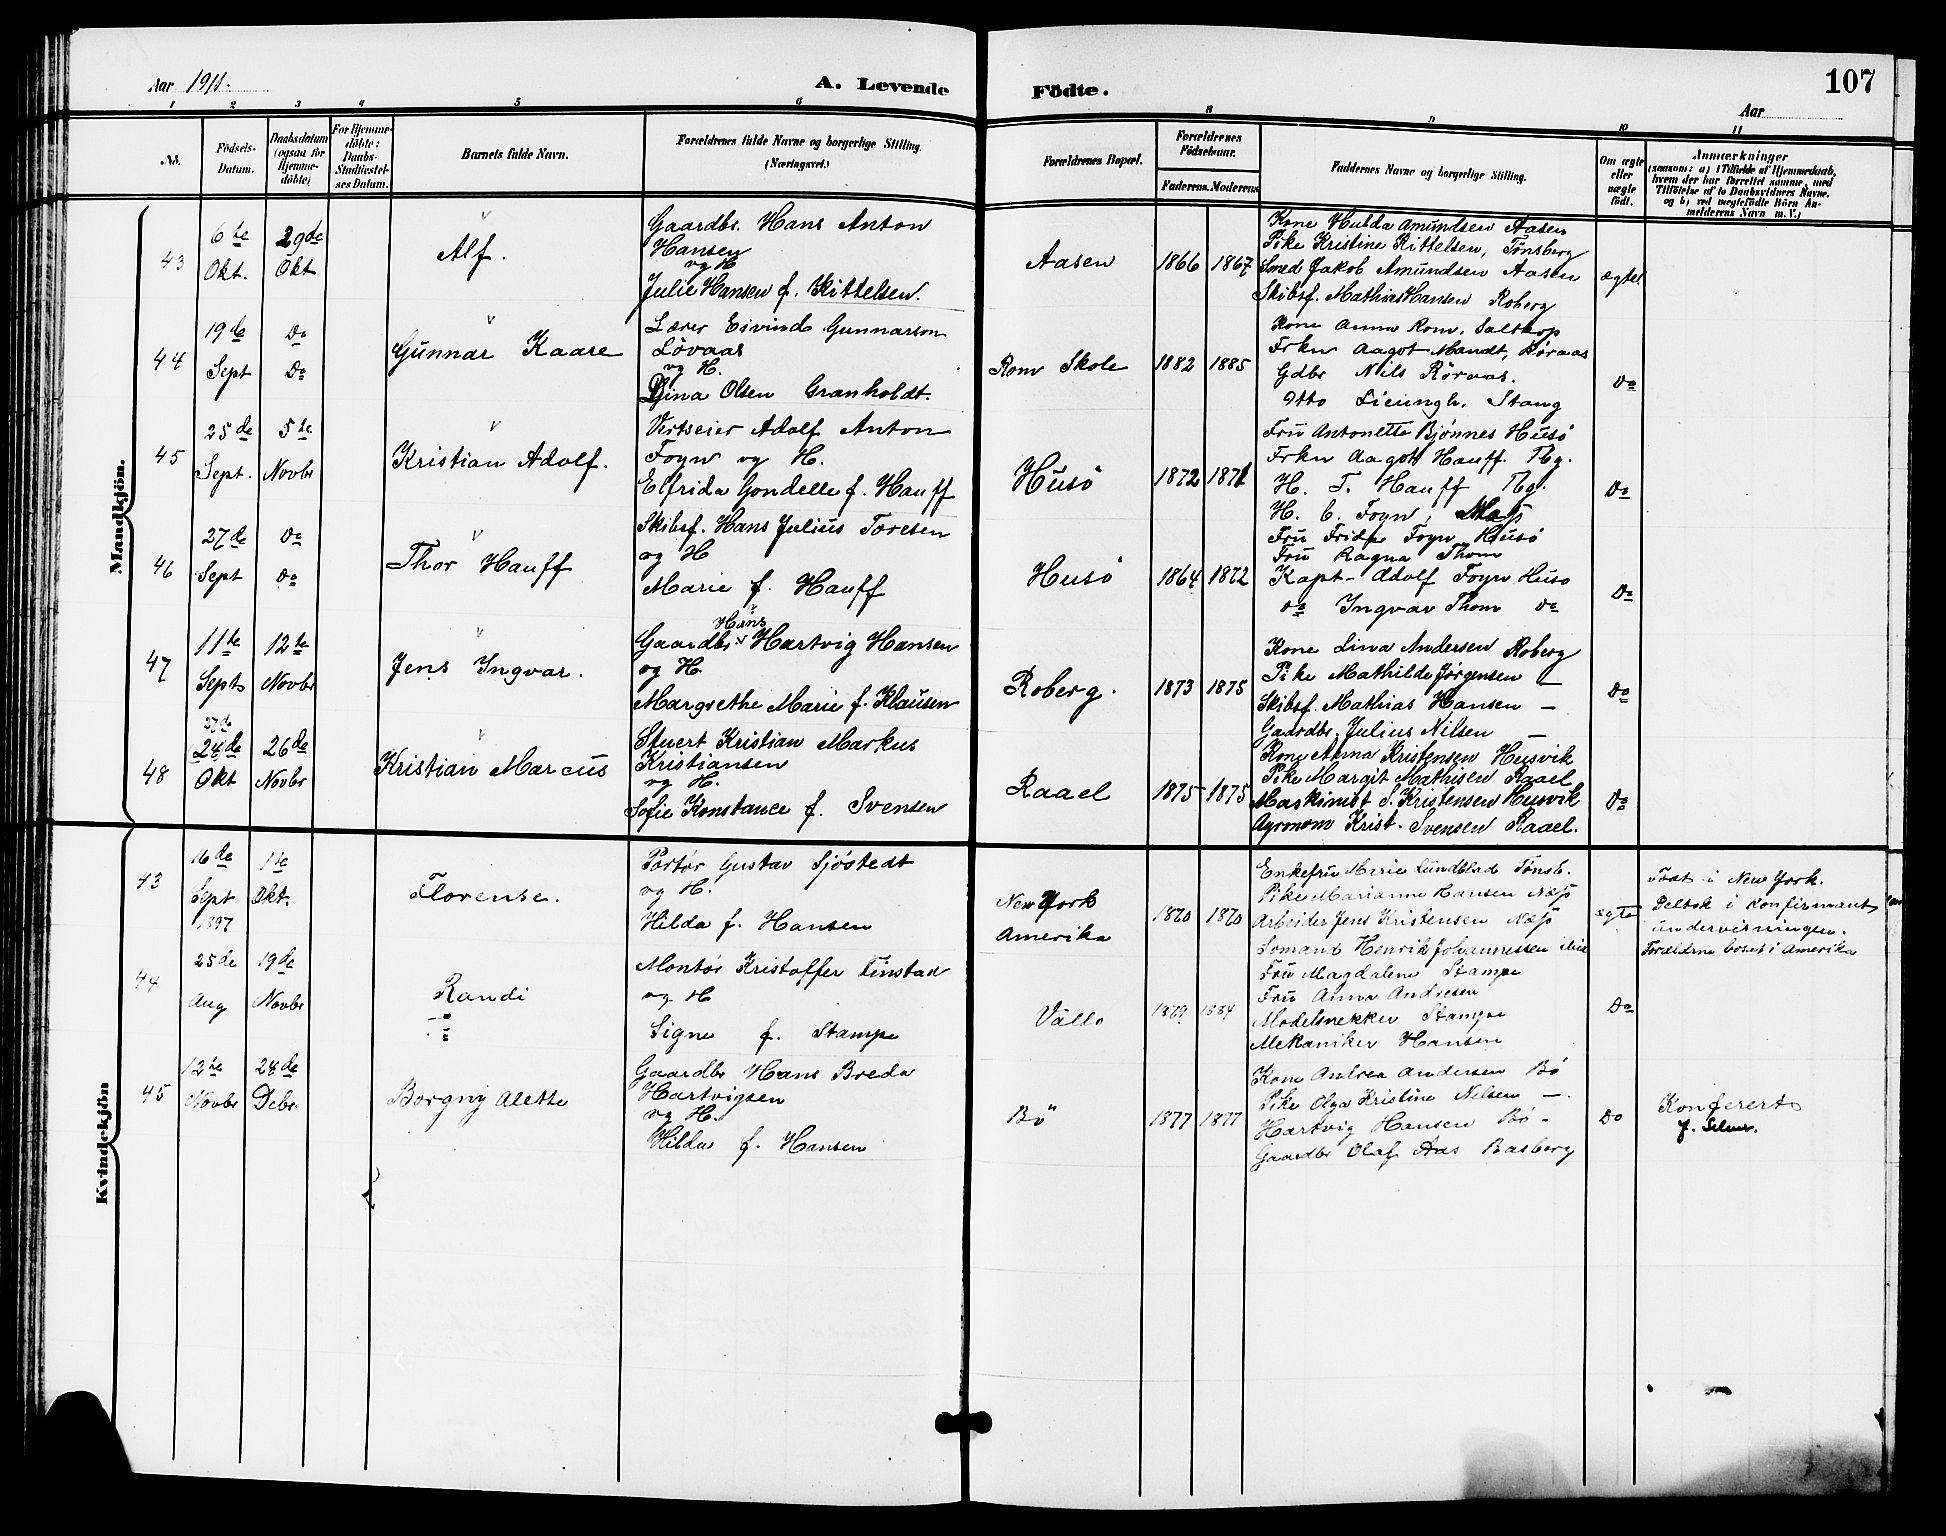 Aar 1911.
A. Levende Födte.
107
Aar
1 2 3 4 5 6 8 9 10 11
No.
Födsels-Datum.
Daabsdatum (ogsaa for Hjemmedöbte)
For Hjemmedöbte: Daabs-Stadfæstelses Datum.
Barnets fulde Navn.
Forældrenes fulde Navne og borgerlige Stilling. (Næringsvei.)
Forældrenes Bopæl.
Forældrenes Födselsaar.
Faderens. Moderens.
Faddernes Navne og borgerlige Stilling.
Om ægte eller uægte födt.
Anmærkninger
(saasom: a) i Tilfælde af Hjemmedaab, hvem der har forrettet samme, med Tilföielse af to Daabsvidners Navne. og b) ved uægtefödte Börn Anmelderens Navn m. V.)
Mandkjön.
43
6te Okt.
29de Okt
Alf.
Gaardbr. Hans Anton
Hansen
og H
Julie Hansen f. Kittelsen.
Aasen
1866 1867
Kone Hulda Amundsen Aasen
Pike Kristine Kittelsen, Tønsberg
Smed Jakob Amundsen Aasen
Skibsf. Mathias Hansen Roberg
ægte
44
19de Sept
Do Do
Gunnar Kaare
Lærer Eivind Gunnarson
Lövaas
og H.
Gina Olsen Granholdt.
Rom Skole
1882 1885
Kone Anna Rom, Saltkop
Frkn Aagot Mandt, Röraas
Gdbr Nils Röraas.
Otto Lieungh, Stang
Do
45
25de Sept.
5te Novbr
Kristian Adolf.
Vertseier Adolf Anton
Foyn og H.
Elfrida Gondelle f. Hauff
Husö
1872 1871
Fru Antonette Bjønnes Husö
Frkn Aagot Hauff. Tbg.
H. T. Hauff Tbg.
H. C. Foyn,
Do
46
27de Sept
Do Do
Thor Hauff
Skibsf. Hans Julius Toresen
og H
Marie f. Hauff
Husö
1864 1872
Fru Frida Foyn Husö
Fru Ragna Thom
Kapt- Adolf Foyn Husö
Do Ingvar Thom Do
Do
47
11te Sept
12te Novbr
Jens Ingvar.
Hans
Gaardbr. Hartvig Hansen
og H.
Margrethe Marie f. Klausen
Roberg.
1873 1875
Kone Lina Andersen Roberg
Pike Mathilde Jørgensen —
Skibsf. Mathias Hansen —
Gaardbr. Julius Nilsen —
Do
48
27de
24de Okt
26de Novbr
Kristian Marcus
Stuert Kristian Markus
Kristiansen
og H.
Sofie Konstance f. Svensen
Raael
1875 1875
Kone Anna Kristensen Husvik
Pike Margit Mathisen Raael
Maskinist S. Kristensen Husvik
Agronom Krist. Svensen Raael.
Do
Kvindekjön
43
16de Sept 1897
1te Okt.
Florense.
Portør Gustav Sjöstedt
og H.
Hilda f. Hansen
New York
Amerika
1870 1870
Enkefru Marie Lundblad Tønsb.
Pike Marianne Hansen Næsö
Arbeider Jens Kristensen Næsö
Sømand Henrik Johannessen
ægte
Födt i New York.
Deltok i Konfirmant
undervisningen.
Forældrene boset i Amerika
44
25de Aug
19de Novbr
Randi
Montör Kristoffer Finstad
og H
Signe f. Stampe
Vallö
1879 1884
Fru Magdalene Stampe
Fru Anna Andresen
Modelsnekker Stampe
Mekaniker Hansen
Do
45
12te Novbr
28de Debr.
Borgny Alette
Gaardbr Hans Breda
Hartvigsen
og H.
Hilda f. Hansen
Bö
1877 1877
Kone Andrea Andersen Bö
Pike Olga Kristine Nelsen —.
Hartvig Hansen Bö -
Gaardbr Olaf Aas Basberg
Do
Konferert